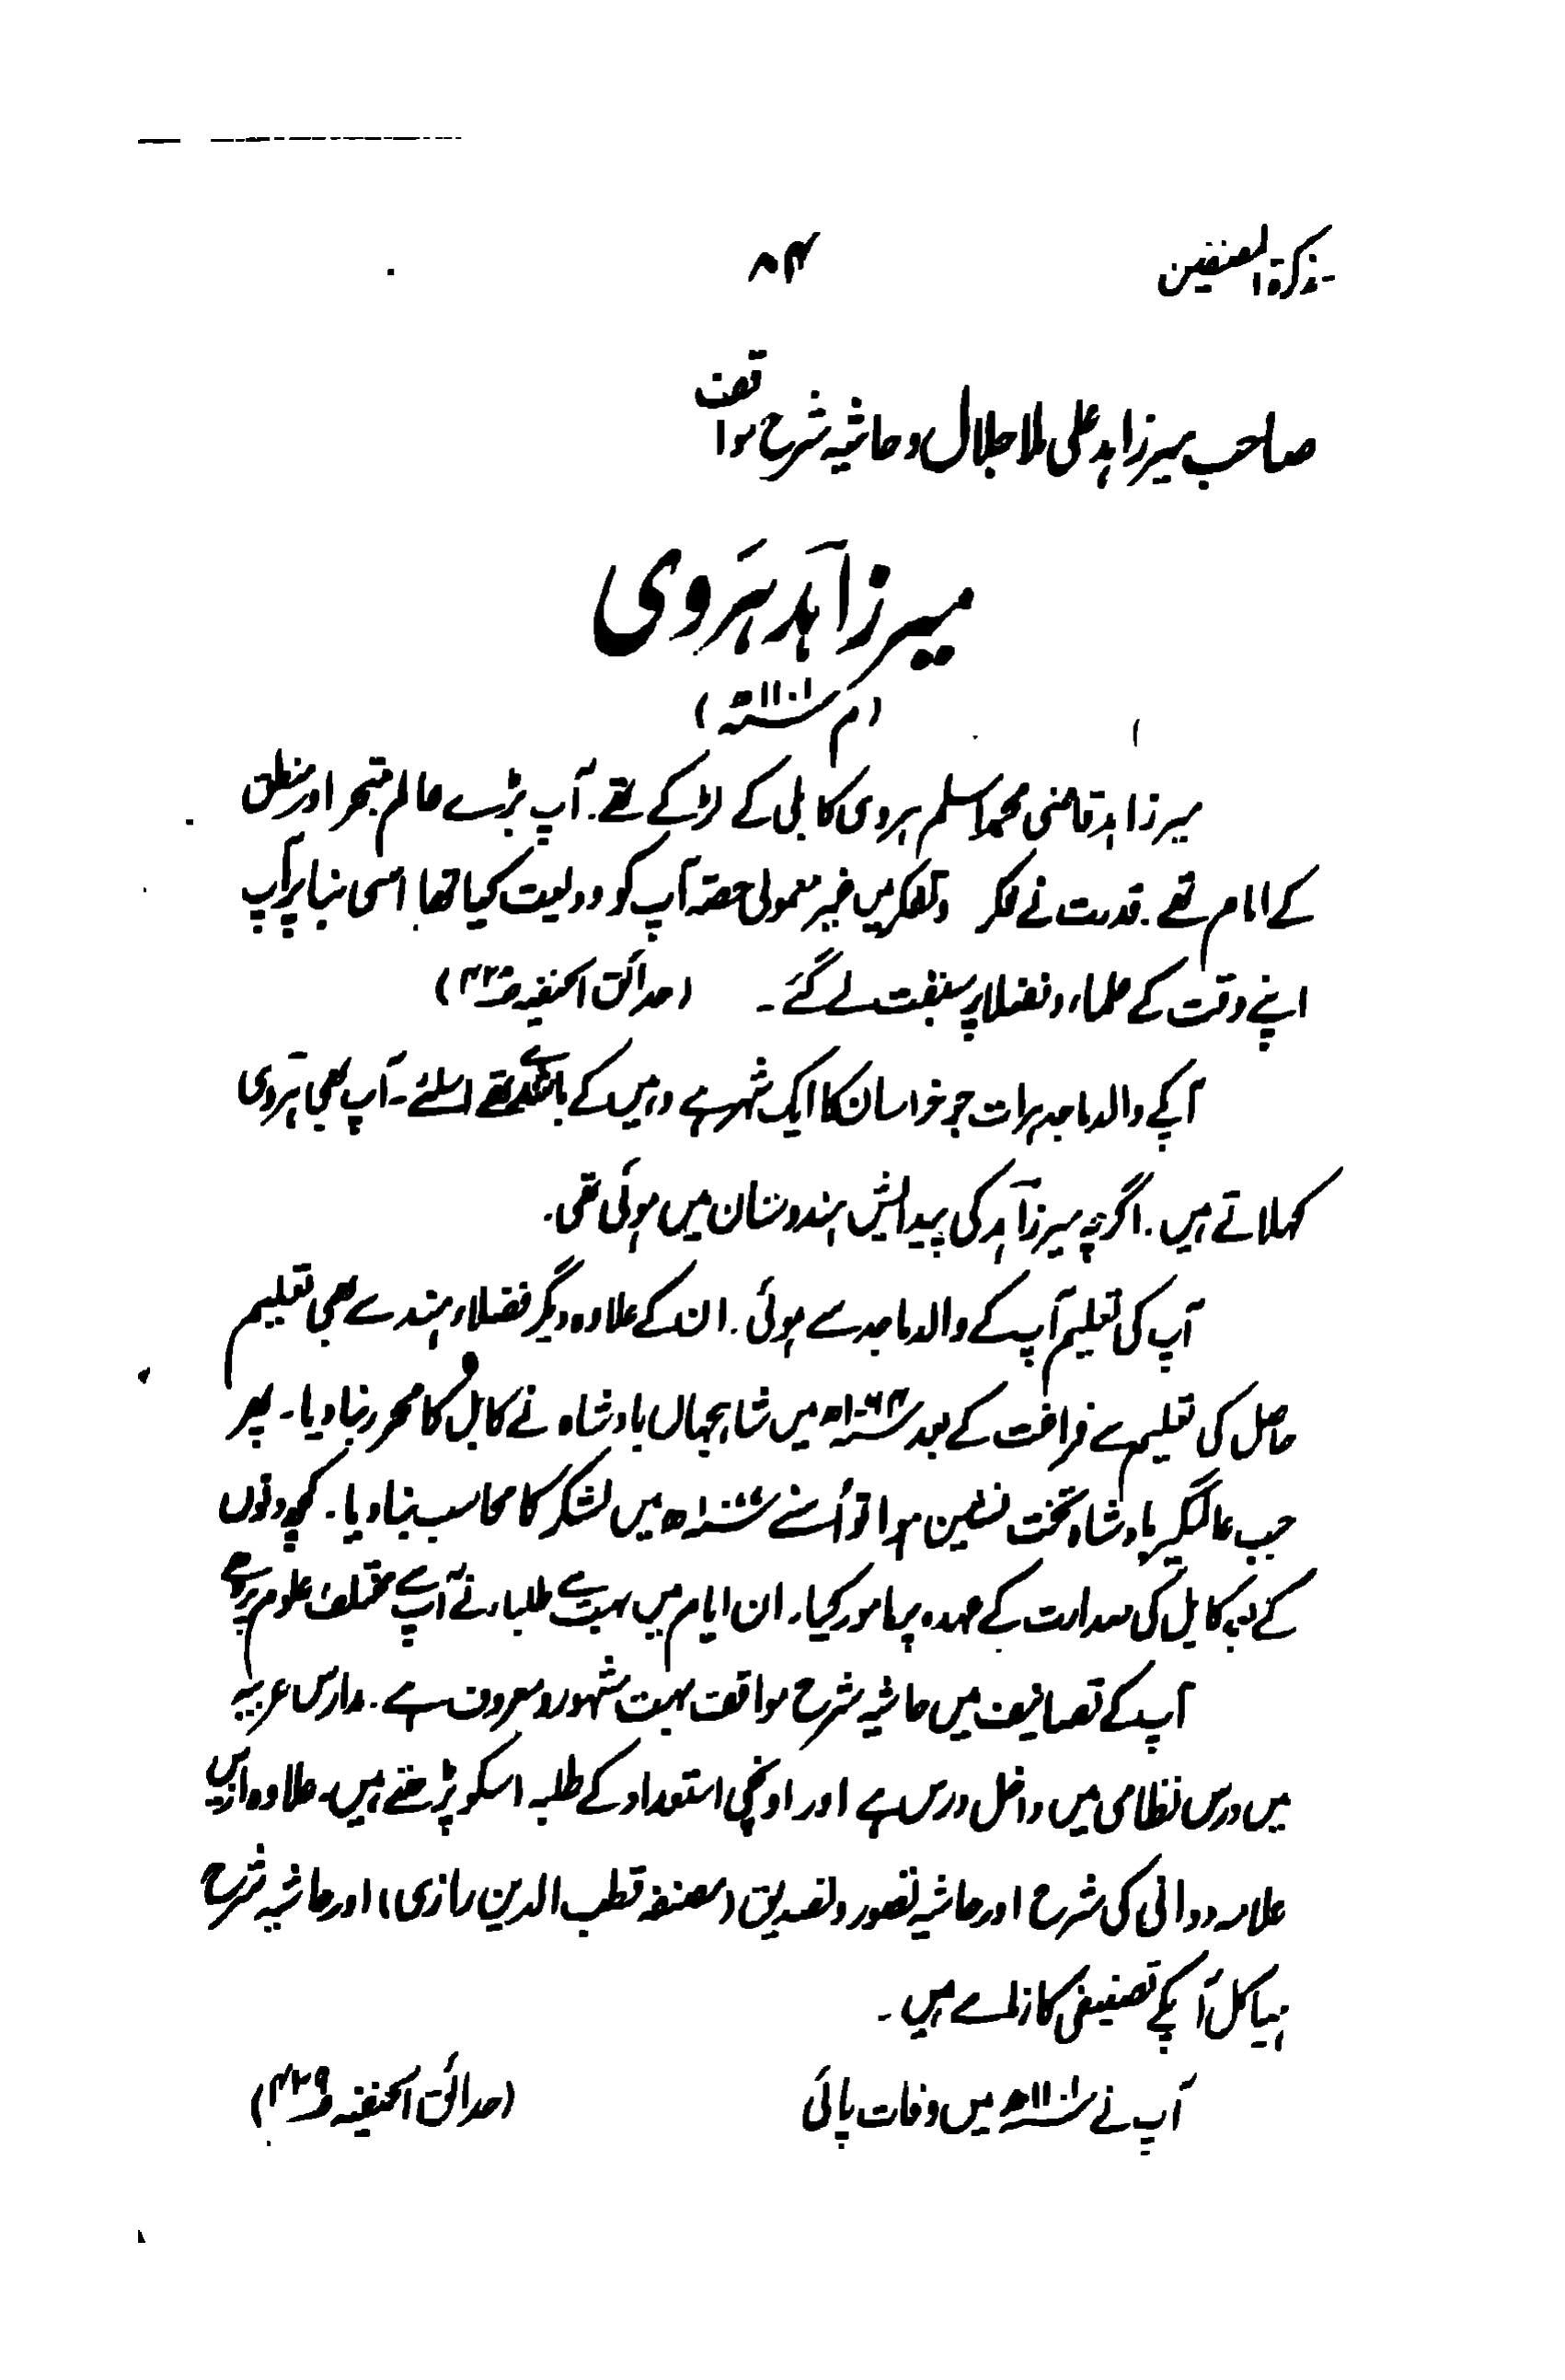 تذکرۃ المصنفین
۸۴
صاحب میرزاہد علی ملا جلال و حاشیہ شرح مواقف
میر زاہد ہَروی
(م ۱۱۰۱ھ)
میر زاہد قاضی محمد اسلم ہروی کابلی کے لڑکے تھے۔ آپ بڑے عالم متبحر اور منطق
کے امام تھے۔ قدرت نے فکر و تفکر میں غیر معمولی حصہ آپ کو ودیعت کیا تھا اسی بنا پر آپ
اپنے وقت کے علماء و فضلا پر سبقت لے گئے۔ (حدائق الحنفیہ ص)
آپکے والد ماجد ہرات جو خراسان کا ایک شہر ہے وہیں کے باشندے تھے اسلئے۔ آپ بھی ہَروی
کہلاتے ہیں۔ اگرچہ میر زاہد کی پیدائش ہندوستان میں ہوئی تھی۔
آپ کی تعلیم آپ کے والد ماجد سے ہوئی۔ ان کے علاوہ دیگر فضلاء ہند سے بھی تعلیم
حاصل کی تعلیم سے فراغت کے بعد ۱۰۶۴ھ میں شاہجہاں بادشاہ نے کابل کا محرر بنا دیا۔ پھر
جب عالمگیر بادشاہ تخت نشین ہوا تو اُسنے میں لشکر کا محاسب بنا دیا۔ کچھ دنوں
کے بعد کابل کی صدارت کے عہدہ پر مامور کیا۔ ان ایام میں بہت سے طلباء نے آپ سے مختلف علوم پڑھے
آپ کے تصانیف میں حاشیہ شرح مواقف بہت مشہور و معروف ہے۔ مدارس عربیہ
میں درس نظامی میں داخل درس ہے اور اونچی استعداد کے طلبہ اسکو پڑھتے ہیں۔ علاوہ ازیں
علامہ دوانی کی شرح اور حاشیہ تصور و تصدیق (مصنفہ قطب الدین رازی) اور حاشیہ شرح
ہیاکل آپکے تصنیفی کارنامے ہیں۔
آپ نے ۱۱۰۱ھ میں وفات پائی (حدائق الحنفیہ ص۴۲۹)